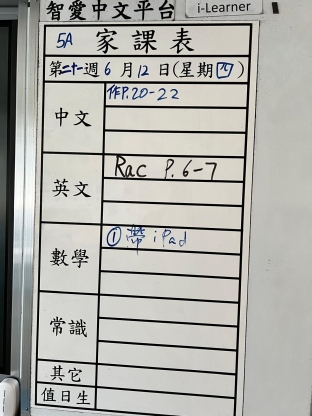 智愛中文平台
i-Learner
5A 家課表
第二十一週 6 月 12 日(星期四)
中文 作P.20-22
英文 Rac P.6-7
數學 ①帶 iPad
常識
其它
值日生